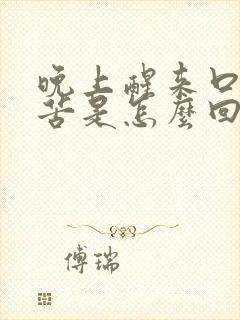 晚上醒来口
苦是怎麼回
傅瑞